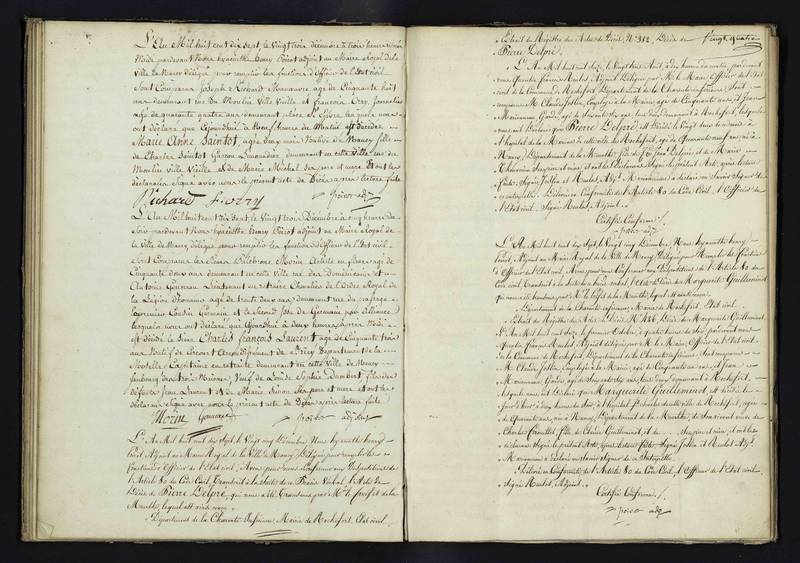 L'An Mil huit cent dix sept, le Vingt trois décembre à trois heures après
Midi pardevant Nous hyacinthe henry Poirot adjoint au Maire Royal de la
Ville de Nancy délégué pour remplir les fonctions d'Officier de l'Etat civil
Sont Comparus Joseph Richard Manœuvre agé de Cinquante huit
ans demeurant rue du Moulin Ville Vieille et francois Orry journalier
agé de quarante quatre ans demeurant place les quels nous
ont déclaré que Cejourd'hui à Neuf heures du Matin est décédée
Marie Anne Saintot, agée Onze mois Native de Nancy fille
de Charles Saintot Garcon demeurant en cette Ville rue du
Moulin Ville Vieille & de Marie Michel Ses père et mère Et ont les
déclarants Signé avec nous le présent acte de Décès après lecture faite
Richard f. orry poirot adj
L'An Mil huit cent dix sept le Vingt trois Décembre à cinq heures du
Soir pardevant Nous hyacinthe henry Poirot adjoint au Maire Royal de
la Ville de Nancy délégué pour remplir les fonctions d'Officier de l'Etat civil
Sont Comparus les Sieurs Morin Artiste agé de
Cinquante deux ans demeurant en cette ville rue des Dominicains et
Antoine Lieutenant en retraite Chevalier de l'Ordre Royal de
la Légion d'honneur agé de trente deux ans demeurant rue du
le premier Cousin Germain et le Second de Germain par alliance
lesquels nous ont déclaré que Cejourd'hui à deux heures après Midi
est décédé le Sieur Charles François Laurent agé de Cinquante trois
ans Natif de Circourt Arrondissement de Briey Département de la
Moselle Capitaine en retraite demeurant en cette Ville de Nancy
faubourg des trois Maisons, Veuf de Sophie Dumbert fils des
défunts Jean Laurent et de Marie Simon Ses père et mère et ont les
déclarants Signé avec nous le présent acte de Décès après lecture faite
Morin poirot adjoint
L'An Mil huit cent dix Sept, le Vingt cinq Décembre Nous hyacinthe henry
Poirot Adjoint au Maire Royal de la Ville de Nancy Délégué pour remplir les
fonctions d'Officier de l'Etat civil, Avons pour nous Conformer aux Dispositions de
l'Article 80 du Code Civil Transcrit à la Suite l'Acte de
Décès de Pierre Delpré, qui nous a été transmis par Mr le Préfet de la
Meurthe, lequel est ainsi concu
Département de la Charente Inférieure, Mairie de Rochefort, Etat civil
Extrait du Régistre des Actes de Décès, No 382, Décès de
Vingt quatre
Pierre Delpré.
L'An Mil huit cent dix, le Vingt huit Aout, à dix heures du matin, pardevant
nous francois Roulet Adjoint Délégué par Mr le Maire Officier de l'Etat
civil de la Commune de Rochefort Département de la Charente inférieure Sont
comparus Mr Claude Joslin, Employé à la Mairie, agé de Cinquante ans, et Jean
Monnereau Garde, agé de ans, tous deux demeurant à Rochefort, lesquels
nous ont Déclaré que Pierre Delpré est Décédé le Vingt
l'hopital de la Marine de cette ville de Rochefort, agé de Quarante neuf ans, né à
Nancy, Département de la Meurthe fils de Delpré et de Marie
Catherine et nous et ont les déclarants Signé le présent Acte, après lecture
faite. Signé Joslin et Roulet Adjt. Monnereau a déclaré ne Savoir Signer de
ce interpellé. Délivré en Conformité de l'Article 80 du Code Civil, l'Officier de
l'Etat civil, Signé Roulet, Adjoint.
Certifié Conforme,
poirot adj
L'An Mil huit cent dix Sept, le Vingt cinq Décembre, Nous hyacinthe henry
Poirot, Adjoint au Maire Royal de la Ville de Nancy Délégué pour remplir les fonctions
d'Officier de l'Etat civil, Avons pour nous Conformer aux Dispositions de l'Article 80 du
Code civil Transcrit à la Suite l'Acte de Décès de Marguerite Guillemint
qui nous a été transmis par Mr le Préfet de la Meurthe lequel est ainsi concu
Département de la Charente inférieure, Mairie de Rochefort, Etat civil
Extrait du Régistre des Actes de Décès, No 446, Décès de Marguerite Guillemint.
L'An Mil huit cent dix, le premier Octobre, à quatre heures du Soir, pardevant nous
francois Roulet Adjoint Délégué par Mr le Maire, Officier de l'Etat civil
de la Commune de Rochefort, Département de la Charente inférieure, Sont comparus
Mr Claude Joslin, Employé à la Mairie, agé de Cinquante ans, et Jean
Monnereau Garde, agé de ans, tous deux demeurant à Rochefort,
lesquels nous ont Déclaré que Marguerite Guillemint est décédée
à l'hopital de cette ville de Rochefort, agée
de Quarante ans, née à Nancy, Département de la Meurthe,
Charles fille de Guillemint, et de et ont les
déclarants Signé le présent Acte, après lecture faite. Signé Joslin et Roulet Adjt.
Monnereau a déclaré ne Savoir Signer de ce interpellé.
Délivré en Conformité de l'Article 80 du Code Civil, l'Officier de l'Etat civil
Signé Roulet, Adjoint.
Certifié Conforme,
poirot adj